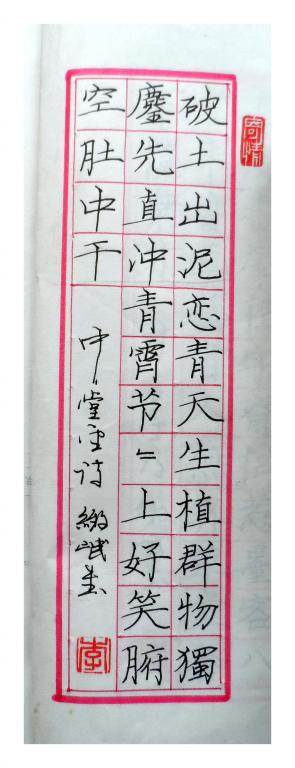 寄情
破土出泥恋青天生植群物獨
鏖先直冲青霄节〻上好笑腑
空肚中干
中堂诗
李